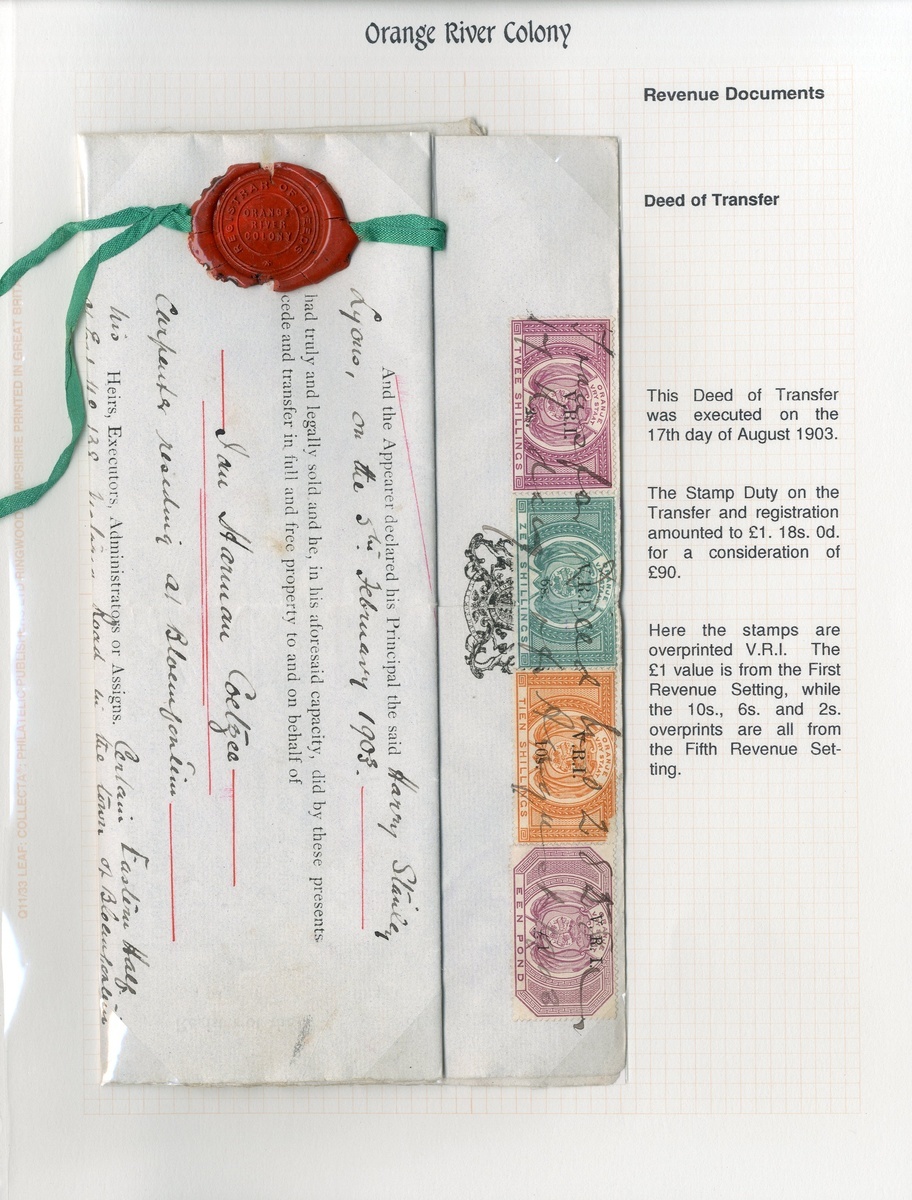 Orange River Colony
Revenue Documents
Deed of Transfer
This Deed of Transfer
was executed on the
17th day of August 1903.
The Stamp Duty on the
Transfer and registration
amounted to £1. 18s. 0d.
for a consideration of
£90.
Here the stamps are
overprinted V.R.I. The
£1 value is from the First
Revenue Setting, while
the 10s., 6s. and 2s.
overprints are all from
the Fifth Revenue Set-
ting.
REGISTRAR OF DEEDS
ORANGE
RIVER
COLONY
And the Appearer declared his Principal the said Harry Stanley
Lyons, on the 5th February 1903.
had truly and legally sold and he, in his aforesaid capacity, did by these presents
cede and transfer in full and free property to and on behalf of
Jan Harman Coetzee
Carpenter residing at Bloemfontein
his Heirs, Executors, Administrators or Assigns. Certain Eastern Half
Road in the town of Bloemfontein
ORANJE
VRY STAAT
V.R.I.
2s.
TWEE SHILLINGS
ORANJE
VRY STAAT
V.R.I.
6s.
ZES SHILLINGS
ORANJE
VRY STAAT
V.R.I.
10s.
TIEN SHILLINGS
V.R.I.
EEN POND